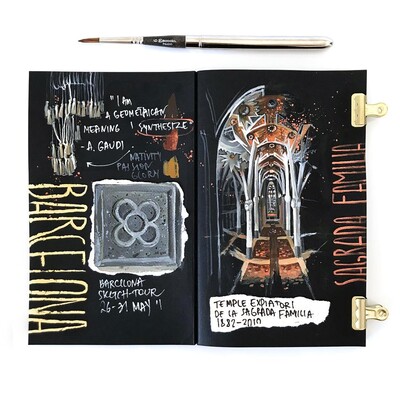 "I AM
A GEOMETRICAN
MEANING I SYNTHESIZE
- A. GAUDI
NATIVITY
PASSION
GLORY
BARCELONA
BARCELONA
SKETCH-TOUR
26-31 MAY
SAGRADA FAMILIA
TEMPLE EXPIATORI
DE LA SAGRADA FAMILIA
1882-2010